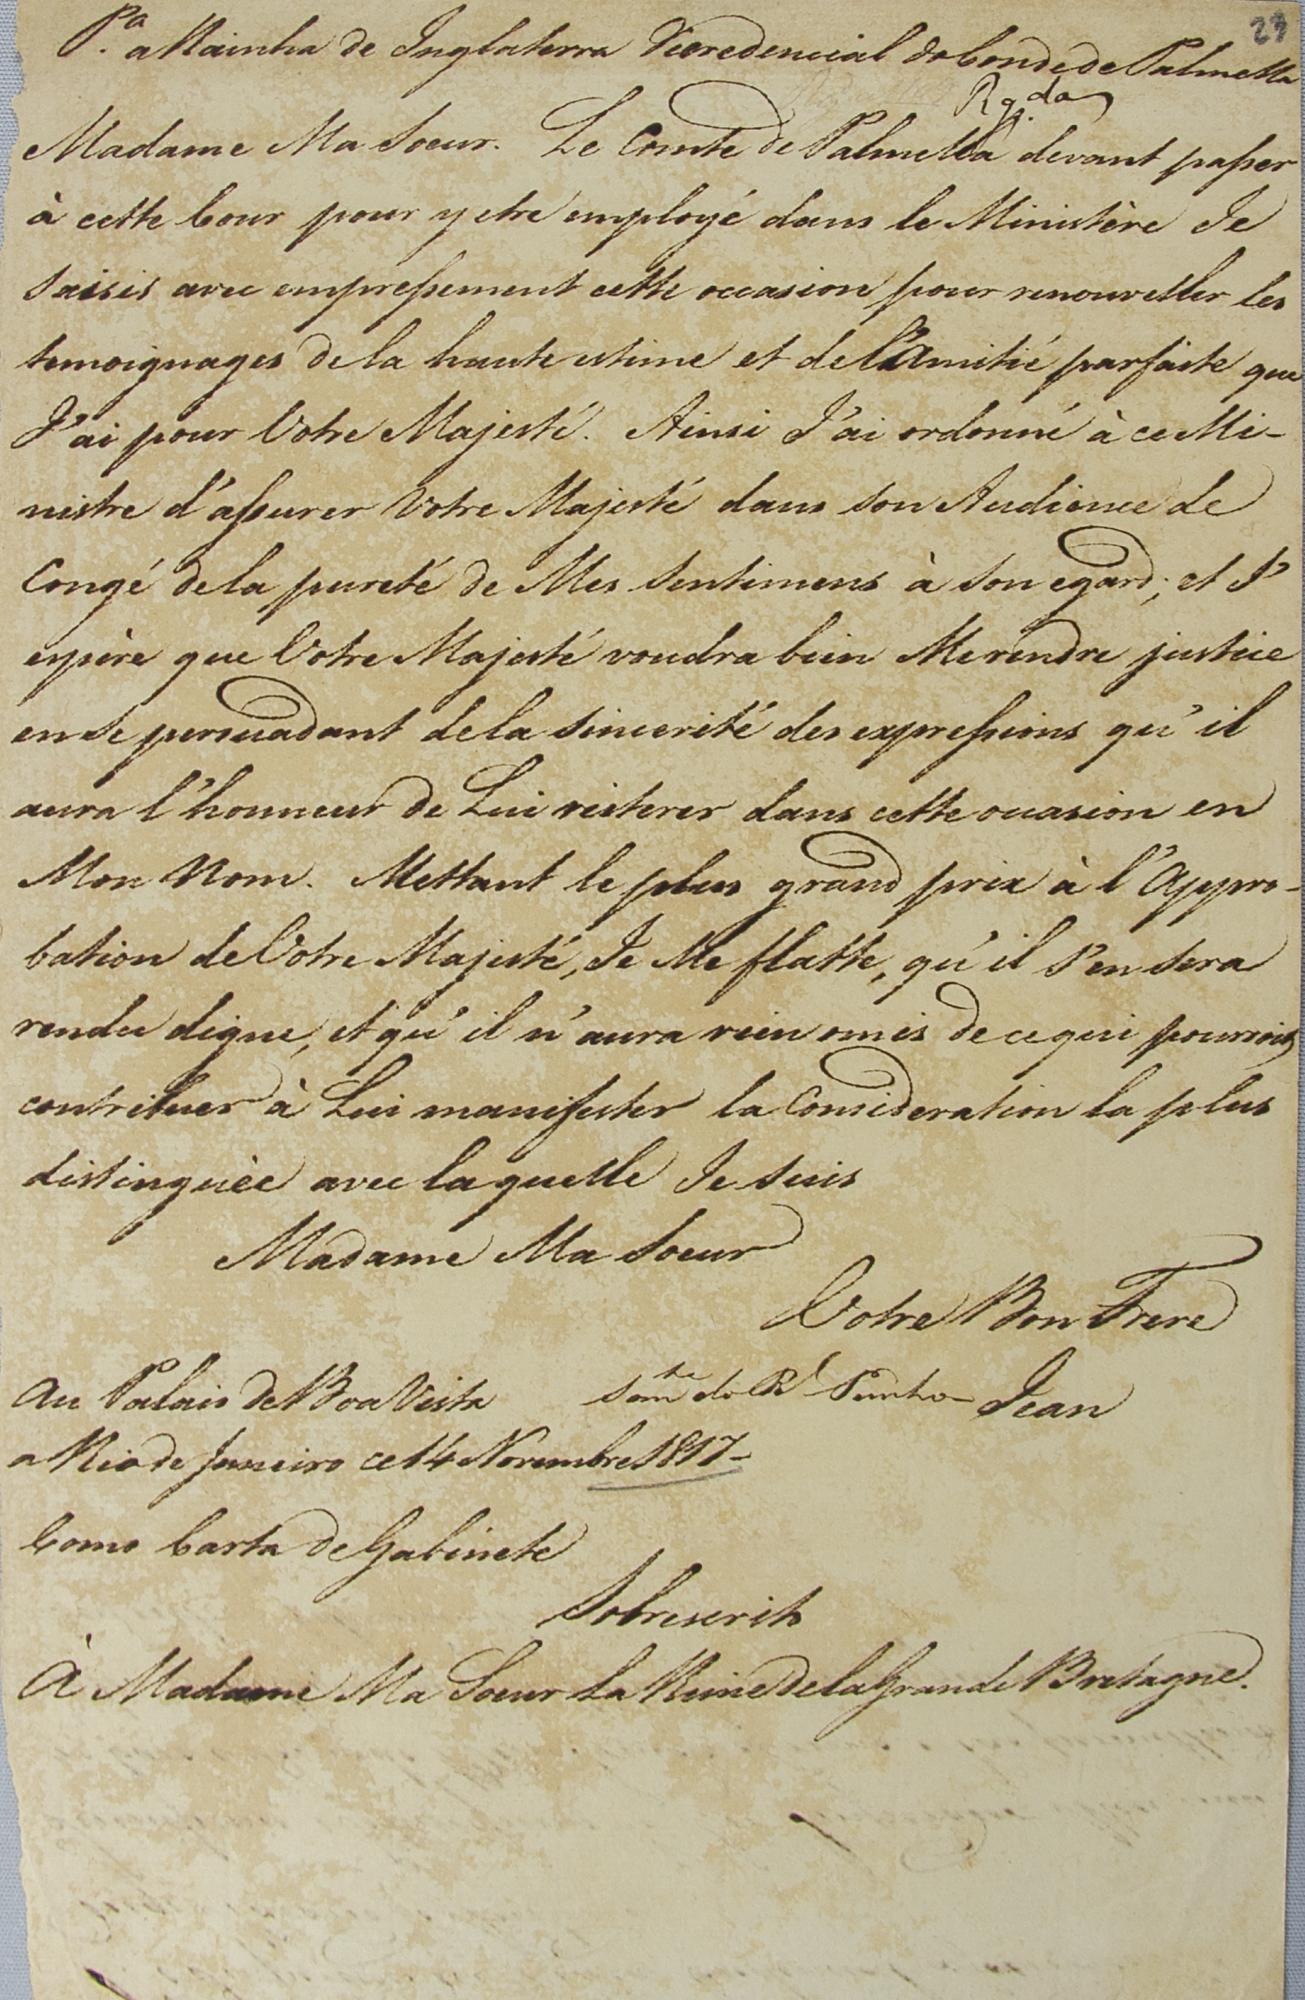 23
P.ª a Rainha de Inglaterra Recredencial do Conde de Palmella
Rg.da
Madame Ma Soeur. Le Comte de Palmella devant passer
à cette Cour pour y etre employé dans le Ministère Je
saisis avec empressement cette occasion pour renouveller les
temoignages de la haute estime et de l'Amitié parfaite que
J'ai pour Votre Majesté. Ainsi J'ai ordonné à ce Mi-
nistre d'assurer Votre Majesté dans son Audience de
Congé de la pureté de Mes sentimens à son egard; et J'
espère que Votre Majesté voudra bien Me rendre justice
en se persuadant de la sincerité des expressions qu'il
aura l'honneur de Lui reiterer dans cette occasion en
Mon Nom. Mettant le plus grand prix à l'Appro-
bation de Votre Majesté, Je Me flatte, qu'il s'en sera
rendu digne, et qu'il n'aura rien omis de ce qui pourroit
contribuer à Lui manifester la Consideration la plus
distinguée avec laquelle Je suis
Madame Ma Soeur
Votre Bon Frere
Au Palais de Boa Vista som.te do R.l Punho Jean
a Rio de Janeiro ce 14 Novembre 1817-
Como Carta de Gabinete
Sobrescrito
À Madame Ma Soeur La Reine de la Grande Bretagne.